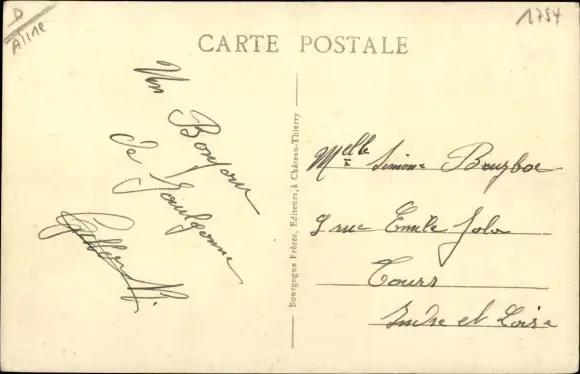 D
Aisne
1754
CARTE POSTALE
Un Bonjour
de Goulgonne
Bourgogne Frères, Editeurs, à Château-Thierry
Melle Simone
9 rue Emile Zola
Tours
Indre et Loire